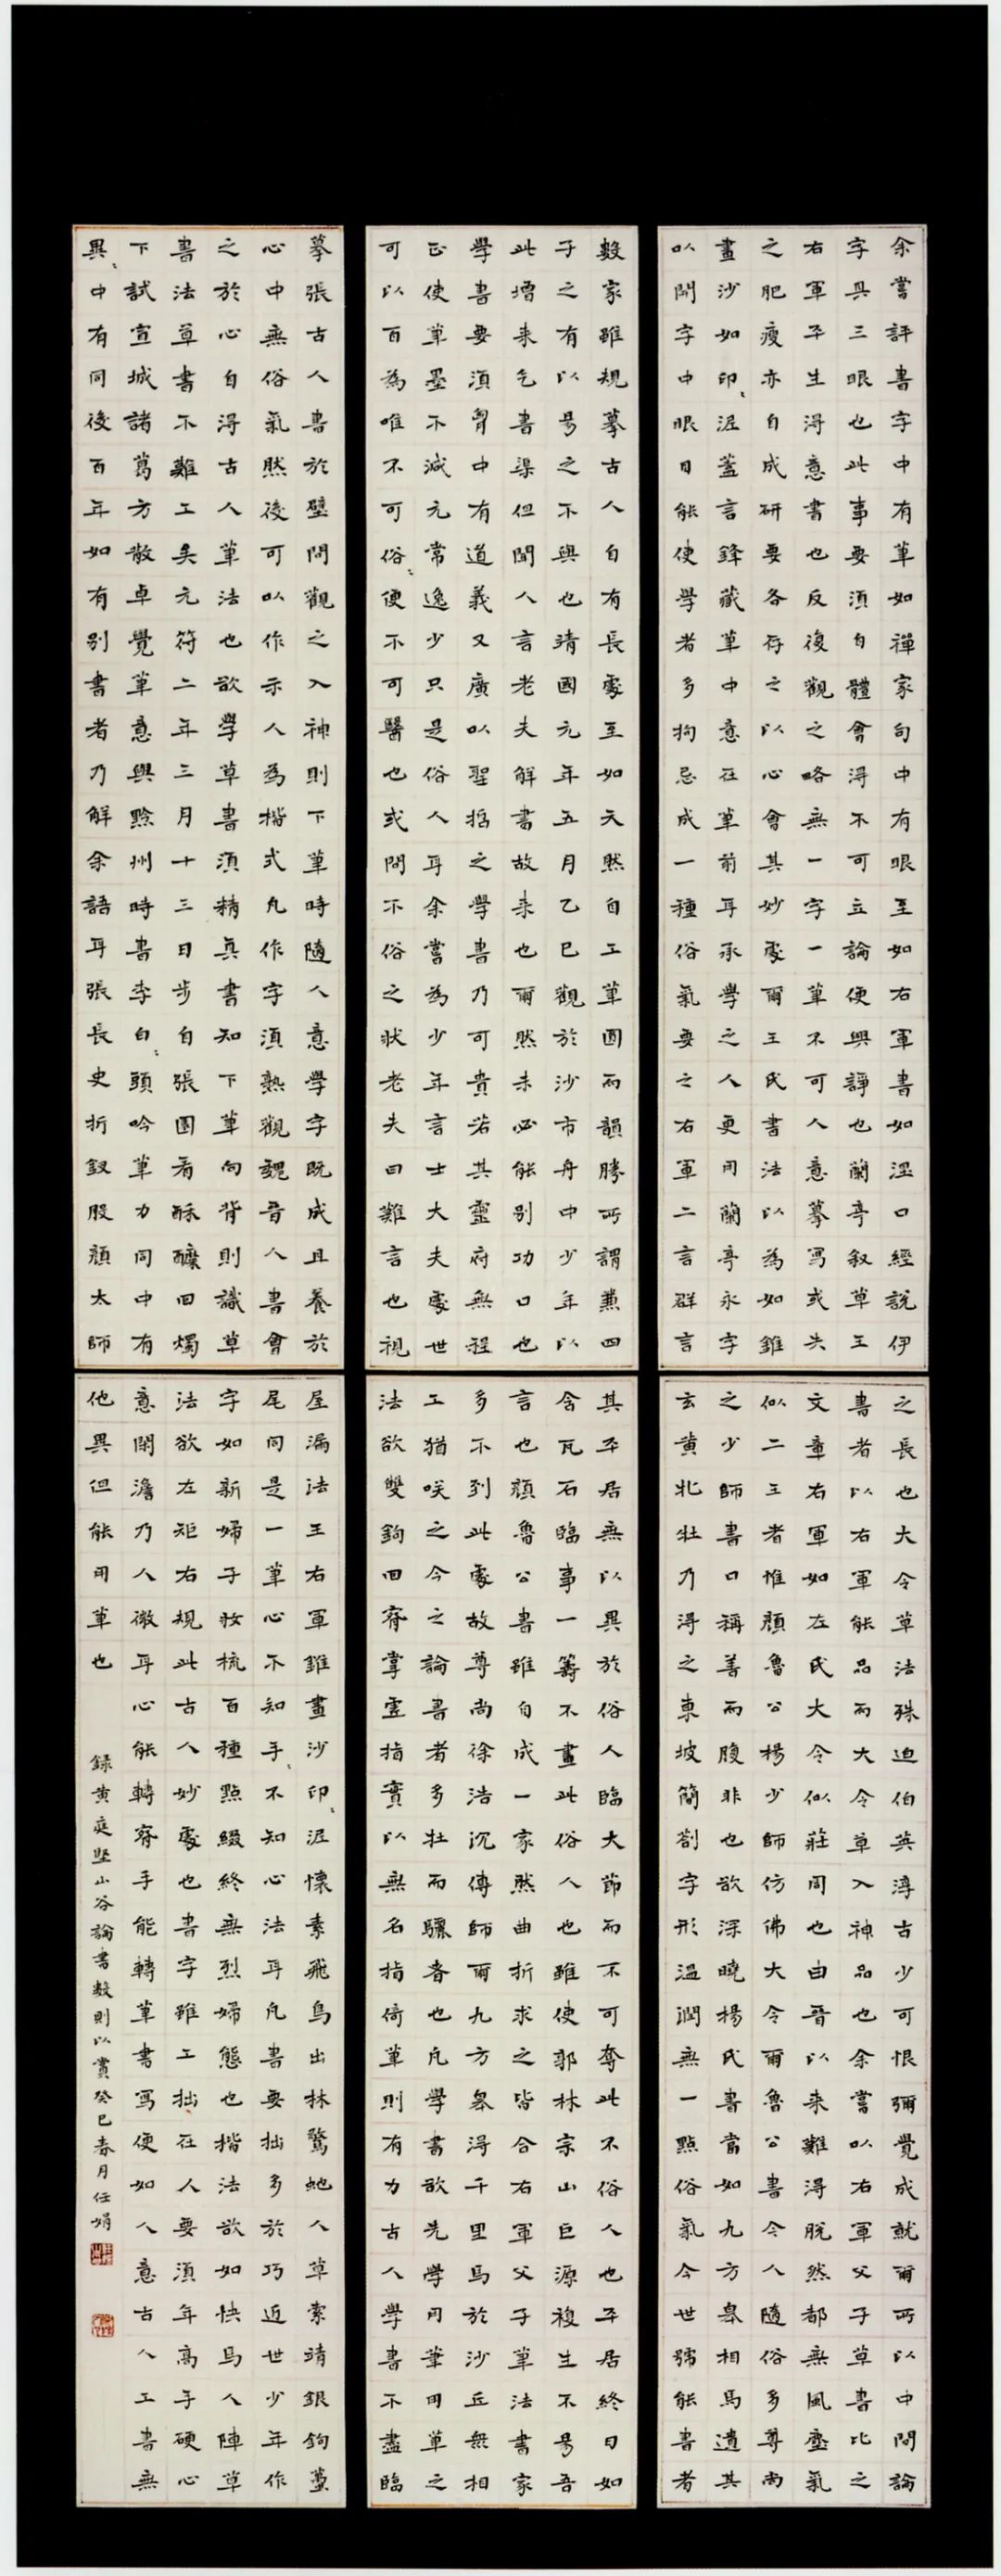 余嘗評書字中有筆如禪家句中有眼至如右軍書如涅口經說伊
字具三眼也此事要須自體會得不可立論便興諍也蘭亭叙草王
右軍平生得意書也反復觀之略無一字一筆不可人意摹寫或失
之肥瘦亦自成研要各存之以心會其妙處爾王氏書法以為如錐
畫沙如印泥蓋言鋒藏筆中意在筆前耳承學之人更用蘭亭永字
以開字中眼目能使學者多拘忌成一種俗氣要之右軍二言群言
之長也大令草法殊迫伯英淳古少可恨彌覺成就爾所以中間論
書者以右軍能品而大令草入神品也余嘗以右軍父子草書比之
文章右軍如左氏大令似莊周也由晉以来難得脫然都無風塵氣
似二王者惟顏魯公楊少師仿佛大令爾魯公書今人隨俗多尊尚
之少師書口稱善而腹非也欲深曉楊氏書當如九方皋相馬遺其
玄黃牝牡乃得之東坡簡劄字形溫潤無一點俗氣今世號能書者
數家雖規摹古人自有長處至如天然自工筆圓而韻勝所謂兼四
子之有以易之不與也靖國元年五月乙巳觀於沙市舟中少年以
此增来乞書渠但聞人言老夫解書故来也爾然未必能別功口也
學書要須胷中有道義又廣以聖哲之學書乃可貴若其靈府無程
正使筆墨不減元常逸少只是俗人耳余嘗為少年言士大夫處世
可以百為唯不可俗〻便不可醫也或問不俗之狀老夫曰難言也視
其平居無以異於俗人臨大節而不可奪此不俗人也平居終日如
含瓦石臨事一籌不畫此俗人也雖使郭林宗山巨源複生不易吾
言也顏魯公書雖自成一家然曲折求之皆合右軍父子筆法書家
多不到此處故尊尚徐浩沉傳師爾九方皋得千里馬於沙丘無相
工猶咲之今之論書者多牡而驪者也凡學書欲先學用筆用筆之
法欲雙鉤回腕掌虛指實以無名指倚筆則有力古人學書不盡臨
摹張古人書於壁間觀之入神則下筆時隨人意學字既成且養於
心中無俗氣然後可以作示人為楷式凡作字須熟觀魏晉人書會
之於心自得古人筆法也欲學草書須精真書知下筆向背則識草
書法草書不難工矣元符二年三月十三日步自張園看酴醾回燭
下試宣城諸葛方散卓覺筆意與黔州時書李白〻頭吟筆力同中有
異〻中有同後百年如有別書者乃解余語耳張長史折釵股顏太師
屋漏法王右軍錐畫沙印〻泥懷素飛鳥出林驚蛇人草索靖銀鉤蠆
尾同是一筆心不知手〻不知心法耳凡書要拙多於巧近世少年作
字如新婦子妝梳百種點綴終無烈婦態也楷法欲如快馬人陣草
法欲左矩右規此古人妙處也書字雖工拙在人要須年高手硬心
意閑澹乃人微耳心能轉腕手能轉筆書寫便如人意古人工書無
他異但能用筆也
録黄庭堅山谷論書數則以賞癸巳春月任娟